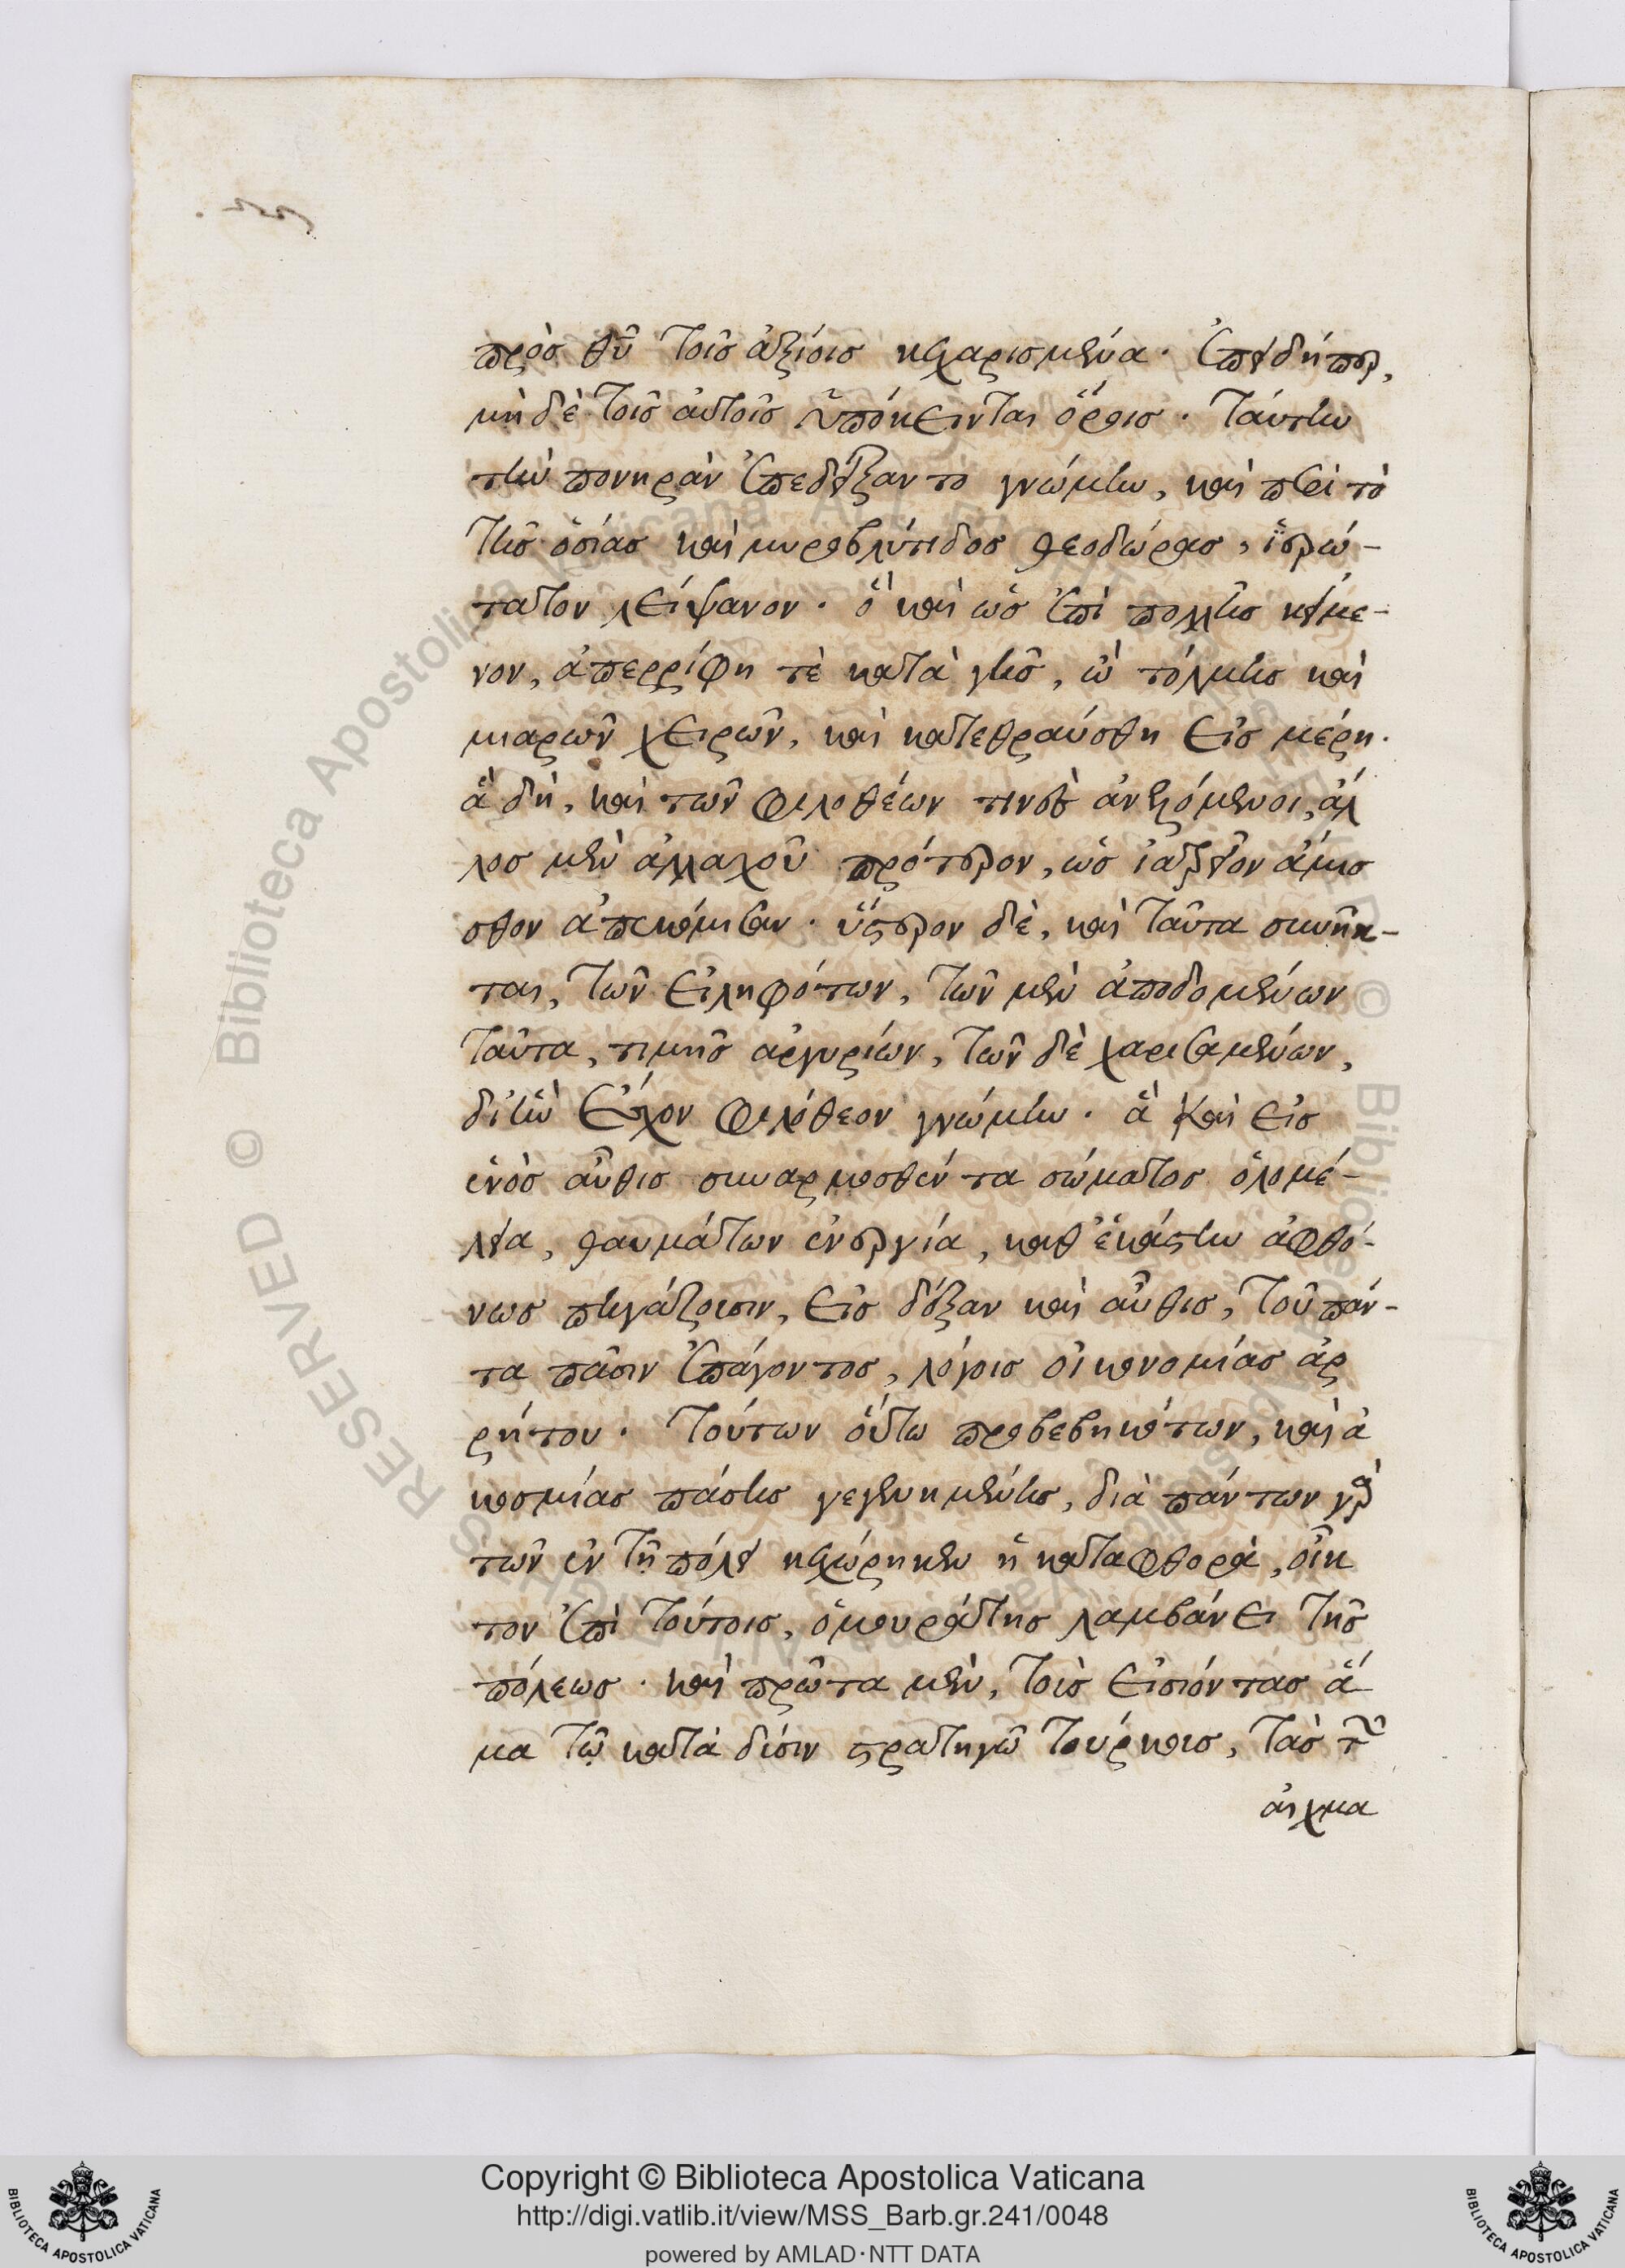 πρὸς θῦ τοῖς ἀξίοις κεχαρισμένα. ἐπειδήπερ,
μὴ δὲ τοῖς αὐτοῖς ὑπόκεινται ὅροις. ταύτην
τὴν πονηρὰν ἐπεδείξαντο γνώμην, καὶ περὶ τὸ
τῆς ὁσίας καὶ μυροβλύτιδος θεοδώρας, ἱερώ-
τατον λείψανον. ὃ καὶ ὡς ἐπὶ πολλῆς κείμε-
νον, ἀπερρίφη τὲ κατὰ γῆς, ὢ τόλμης καὶ
μιαρῶν χειρῶν, καὶ κατεθραύσθη εἰς μέρη.
ἃ δὴ, καὶ τῶν φιλοθέων τινὲς ἀνῃρόμενοι, ἄλ
λος μὲν ἀλλαχοῦ πρότερον, ὡς ἰατρεῖον ἄμισ
θον ἀπεκόμισαν. ὕστερον δὲ, καὶ ταῦτα συνῆκ-
ται, τῶν εἰληφότων, τῶν μὲν ἀποδομένων
ταῦτα, τιμῆς ἀργυρίων, τῶν δὲ χαρισαμένων,
δι' ἣν εἶχον φιλόθεον γνώμην. ἃ καὶ εἰς
ἑνὸς αὖθις συναρμοσθέντα σώματος ὁλομέ-
λεια, θαυμάτων ἐνεργία, καθ' ἑκάστην ἀφθό-
νως πηγάζουσιν, εἰς δόξαν καὶ αὖθις, τοῦ πάν-
τα πᾶσιν ἐπάγοντος, λόγοις οἰκονομίας ἀρ
ρήτου. τούτων οὕτω προβεβηκότων, καὶ ἀ
κοσμίας πάσης γεγενημένης, διὰ πάντων γὰρ
τῶν ἐν τῇ πόλει κεχώρηκεν ἡ καταφθορὰ, οἶκ
τον ἐπὶ τούτοις, ὁ μουράτης λαμβάνει τῆς
πόλεως. καὶ πρῶτα μὲν, τοὺς εἰσιόντας ἅ
μα τῷ κατὰ δύσιν στρατηγῷ τούρκοις, τὰς τῶν
αἰχμα
Copyright © Biblioteca Apostolica Vaticana
http://digi.vatlib.it/view/MSS_Barb.gr.241/0048
powered by AMLAD·NTT DATA